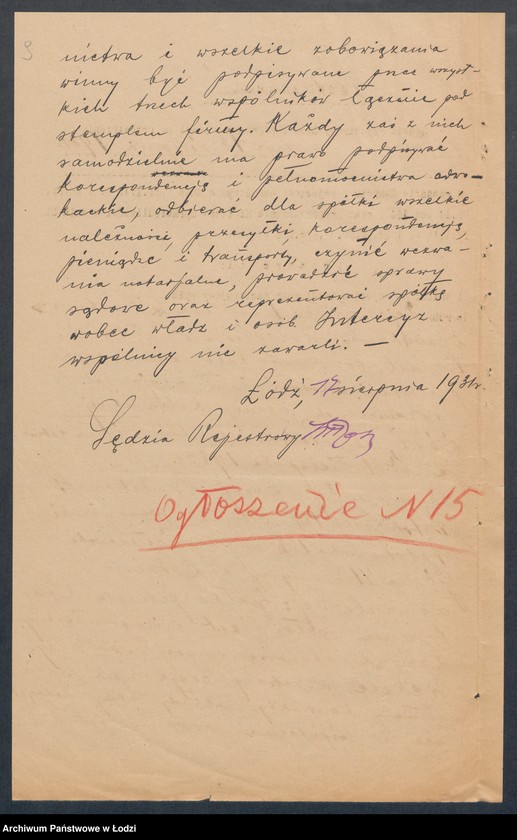 9
nictwa i wszelkie zobowiązania
winny być podpisywane przez wszyst-
kich trzech wspólników łącznie pod
stemplem firmy. Każdy zaś z nich
samodzielnie ma prawo podpisywać
korespondencję i pełnomocnictwa adwo-
kackie, odbierać dla spółki wszelkie
należności, przesyłki, korespondencję,
pieniądze i transporty, czynić wezwa-
nia notarjalne, prowadzić sprawy
sądowe oraz reprezentować spółkę
wobec władz i osób. Intercyz
wspólnicy nie zawarli. —
Łódź, 17 sierpnia 1931 r.
Sędzia Rejestrowy
Ogłoszenie N 15
Archiwum Państwowe w Łodzi